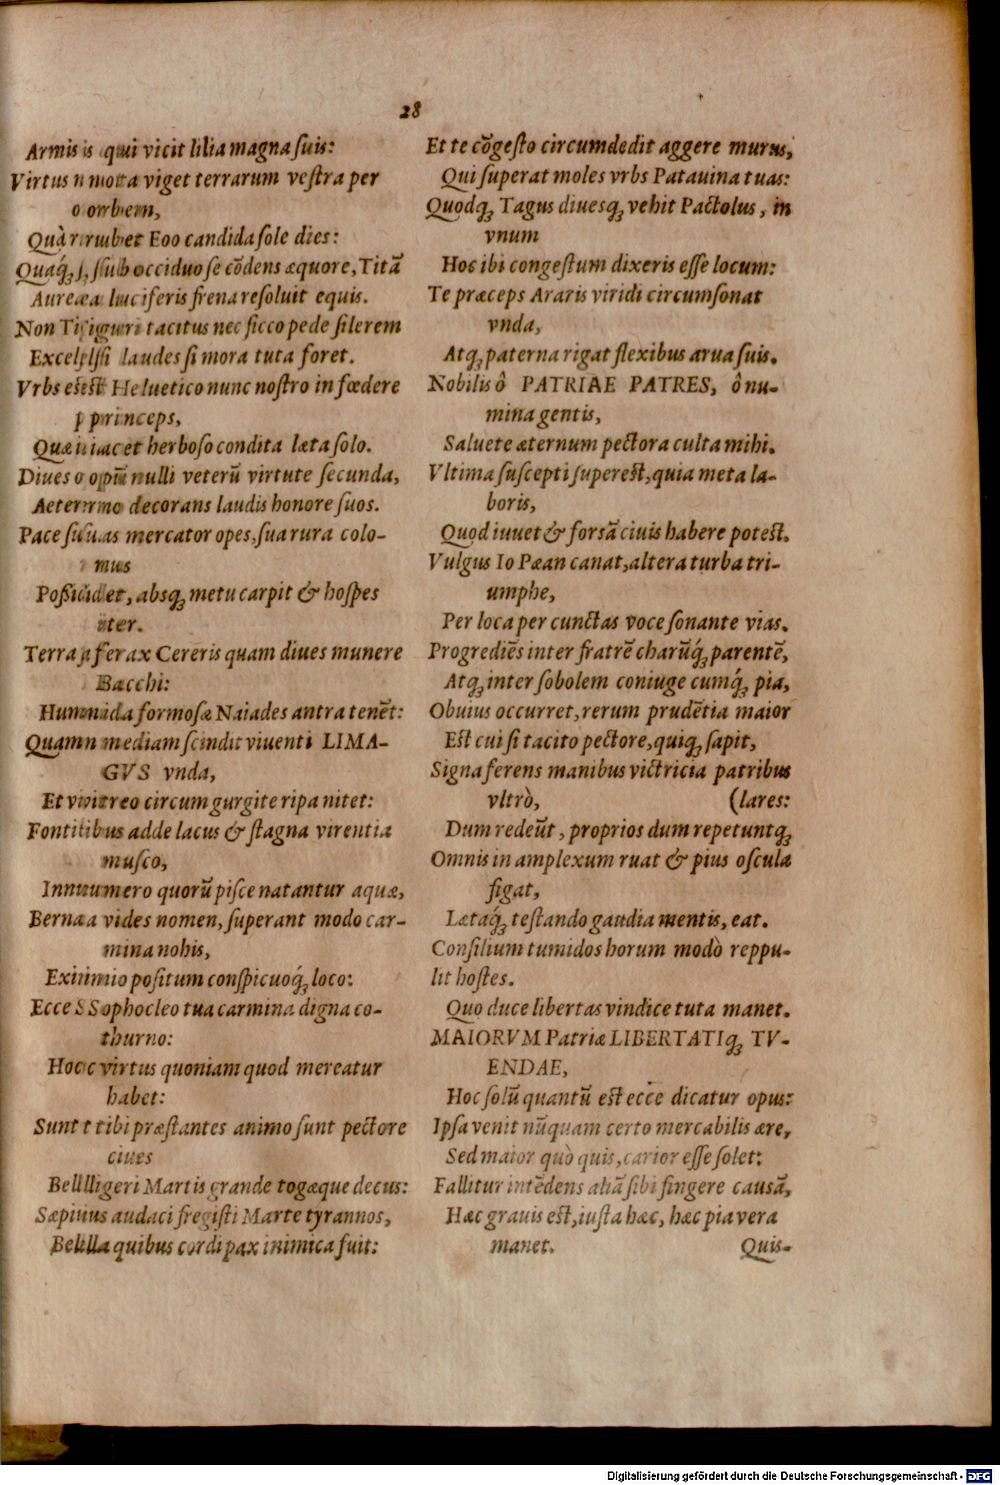 28
Armis is qui vicit lilia magna ſuis:
Virtus nota viget terrarum veſtra per
orbem,
Quà rubet Eoo candida ſole dies:
Quaq́ꝫ ſub occiduo ſe cōdens æquore, Titā
Aurea luciferis frena reſoluit equis.
Non Tiguri tacitus nec ſicco pede ſilerem
Excelſi laudes ſi mora tuta foret.
Vrbs eſt Heluetico nunc noſtro in fœdere
princeps,
Quæ iacet herboſo condita læta ſolo.
Diues opū nulli veterū virtute ſecunda,
Aeterno decorans laudis honore ſuos.
Pace ſuas mercator opes, ſua rura colo-
nus
Poßidet, absqꝫ metu carpit & hoſpes
iter.
Terra ferax Cereris quam diues munere
Bacchi:
Humida formoſæ Naiades antra tenēt:
Quam mediam ſcindit viuenti LIMA-
GVS vnda,
Et vitreo circum gurgite ripa nitet:
Fontibus adde lacus & ſtagna virentia
muſco,
Innumero quorū piſce natantur aquæ,
Berna vides nomen, ſuperant modo car-
mina nobis,
Eximio poſitum conſpicuoq́ꝫ loco:
Ecce Sophocleo tua carmina digna co-
thurno:
Hoc virtus quoniam quod mereatur
habet:
Sunt tibi præſtantes animo ſunt pectore
ciues
Belligeri Martis grande togæque decus:
Sæpius audaci fregiſti Marte tyrannos,
Bella quibus cordi pax inimica fuit:
Et te cōgeſto circumdedit aggere murus,
Qui ſuperat moles vrbs Patauina tuas:
Quodqꝫ Tagus diuesqꝫ vehit Pactolus, in
vnum
Hoc ibi congeſtum dixeris eſſe locum:
Te præceps Araris viridi circumſonat
vnda,
Atqꝫ paterna rigat flexibus arua ſuis.
Nobilis ô PATRIAE PATRES, ô nu-
mina gentis,
Saluete æternum pectora culta mihi.
Vltima ſuſcepti ſupereſt, quia meta la-
boris,
Quod iuuet & forſā ciuis habere poteſt.
Vulgus Io Pæan canat, altera turba tri-
umphe,
Per loca per cunctas voce ſonante vias.
Progrediēs inter fratrē charūq́ꝫ parentē,
Atqꝫ inter ſobolem coniuge cumq́ꝫ pia,
Obuius occurret, rerum prudētia maior
Eſt cui ſi tacito pectore, quiqꝫ ſapit,
Signa ferens manibus victricia patribus
vltrò, (lares:
Dum redeūt, proprios dum repetuntqꝫ
Omnis in amplexum ruat & pius oſcula
figat,
Lætaq́ꝫ teſtando gaudia mentis, eat.
Conſilium tumidos horum modò reppu-
lit hoſtes.
Quo duce libertas vindice tuta manet.
MAIORVM Patriæ LIBERTATIqꝫ TV-
ENDAE,
Hoc ſolū quantū eſt ecce dicatur opus:
Ipſa venit nūquam certo mercabilis ære,
Sed maior quò quis, carior eſſe ſolet:
Fallitur intēdens aliā ſibi fingere cauſā,
Hæc grauis eſt, iuſta hæc, hæc pia vera
manet. Quis-
Digitalisierung gefördert durch die Deutsche Forschungsgemeinschaft - DFG